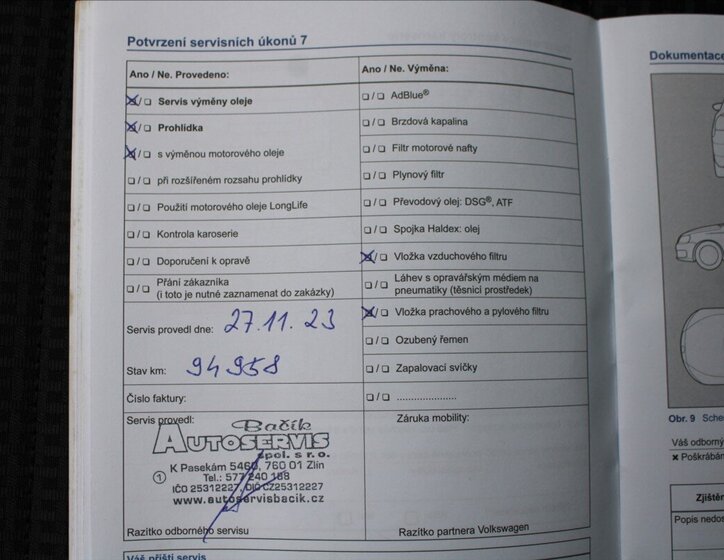 Potvrzení servisních úkonů 7
Ano / Ne. Provedeno:
☒/❑ Servis výměny oleje
☒/❑ Prohlídka
☒/❑ s výměnou motorového oleje
❑/❑ při rozšířeném rozsahu prohlídky
❑/❑ Použití motorového oleje LongLife
❑/❑ Kontrola karoserie
❑/❑ Doporučení k opravě
❑/❑ Přání zákazníka
(i toto je nutné zaznamenat do zakázky)
Servis provedl dne: 27.11.23
Stav km: 94958
Číslo faktury:
Servis provedl:
Bačík
AUTOSERVIS
spol. s r.o.
K Pasekám 5460, 760 01 Zlín
① Tel.: 577 240 188
IČO 25312227, DIČ CZ25312227
www.autoservisbacik.cz
Razítko odborného servisu
Ano / Ne. Výměna:
❑/❑ AdBlue®
❑/❑ Brzdová kapalina
❑/❑ Filtr motorové nafty
❑/❑ Plynový filtr
❑/❑ Převodový olej: DSG®, ATF
❑/❑ Spojka Haldex: olej
☒/❑ Vložka vzduchového filtru
❑/❑ Láhev s opravářským médiem na
pneumatiky (těsnicí prostředek)
☒/❑ Vložka prachového a pylového filtru
❑/❑ Ozubený řemen
❑/❑ Zapalovací svíčky
❑/❑ .....................
Záruka mobility:
Razítko partnera Volkswagen
Váš příští servis
Dokumentace
Obr. 9 Sche
Váš odborný
✖ Poškrábán
Zjiště
Popis nedos